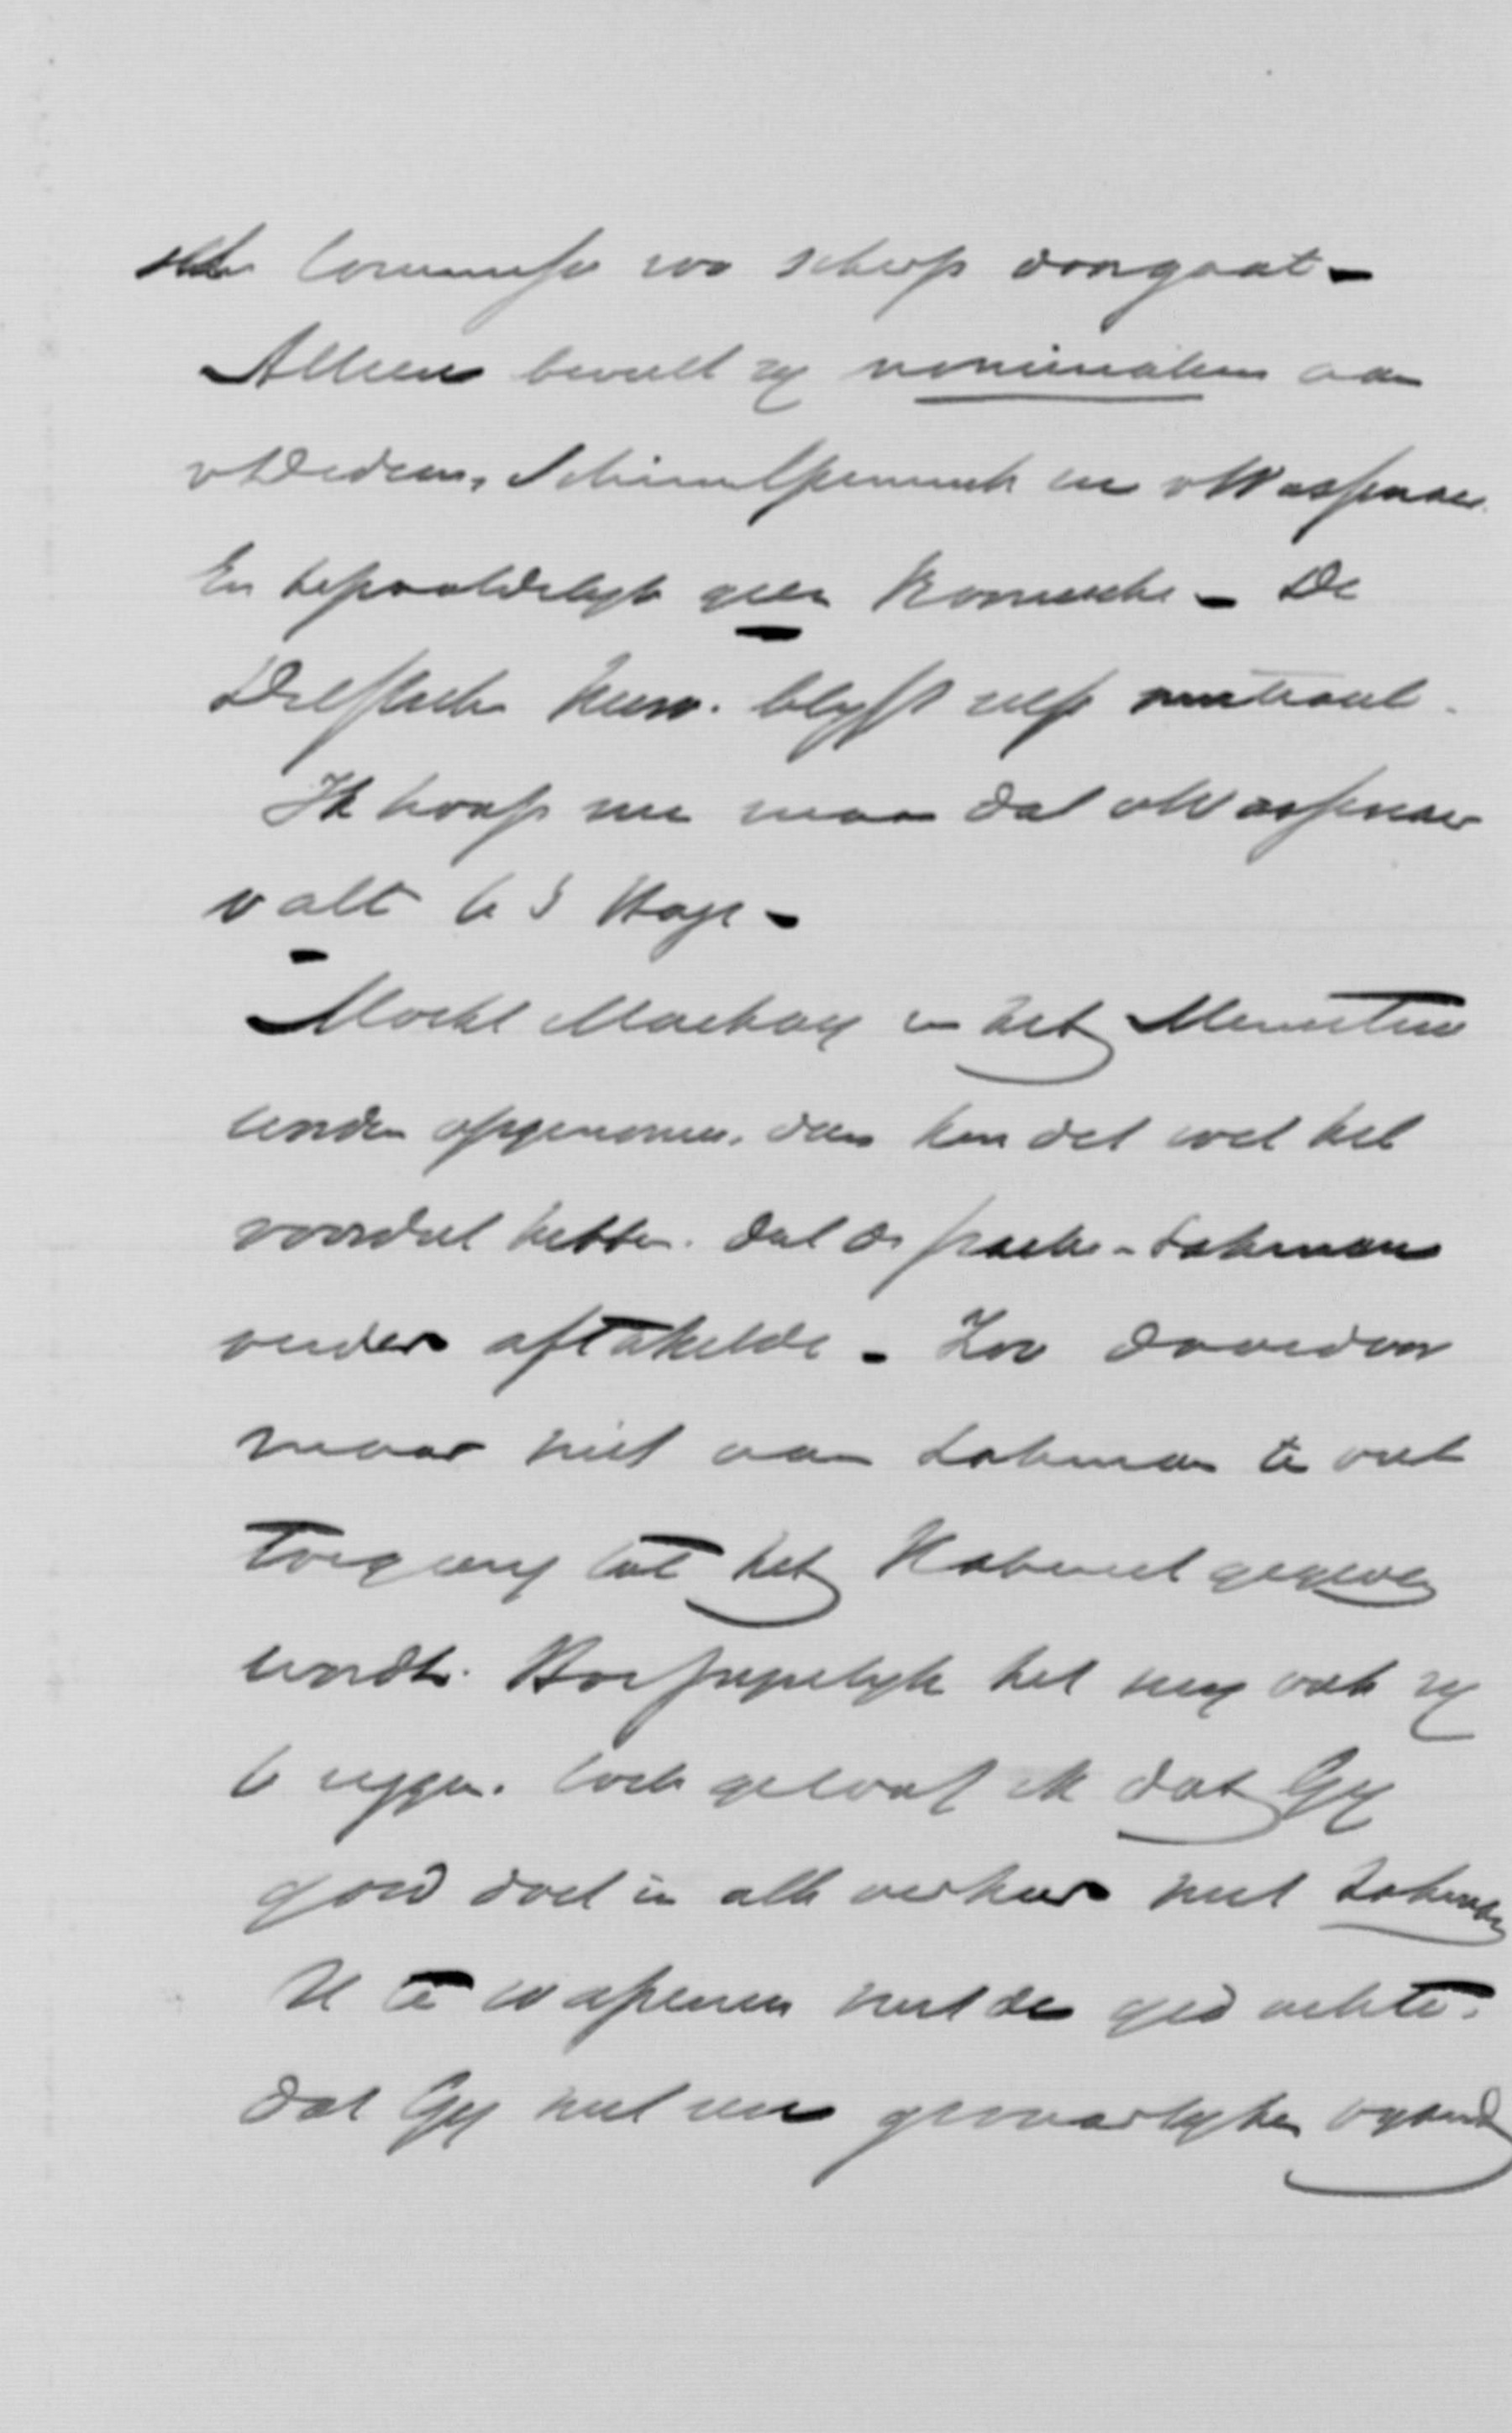 commissie zoo scherp doorgaat –
Alleen beveelt zij nominatim aan
v Dedem, Schimmelpenninck en v Wassenaer.
En bepaaldelijk geen Roomsche – De
Delftsche blijft zelfs neutraal.
Ik hoop nu maar dat v Wassenaer
valt te 's Hage –
Mocht Mackay in het Ministerie
worden opgenomen, dan kan dat wel het
voordeel hebben, dat de fractie-Lohman
verder aftakelde – Zoo daardoor
maar niet aan Lohman te veel
toegang tot het Kabinet gegeven
wordt. Hoe het mij ook zij
te zeggen, toch geloof ik dat Gij
goed doet in alle verkeer met Lohman
U te wapenen met de gedachte,
dat Gij met een gevaarlijken vijand